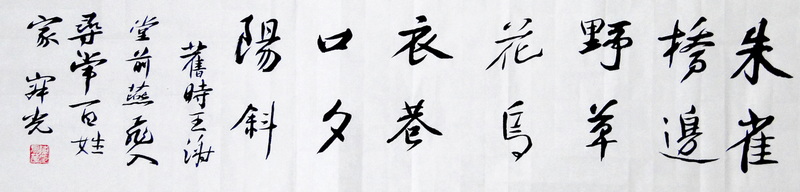 朱雀
橋邊
野草
花烏
衣巷
口夕
陽斜
舊時王謝
堂前燕飛入
尋常百姓
家 光